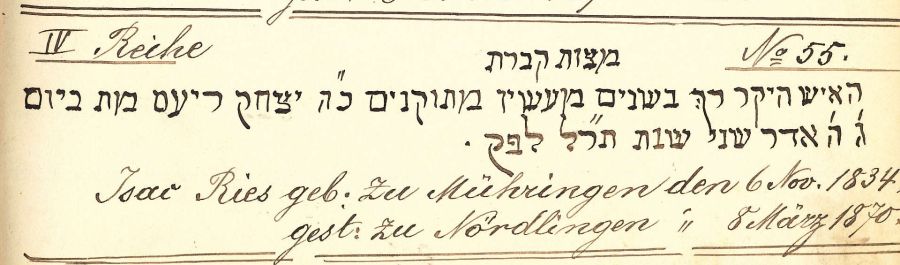 IV Reihe No 55.
מצבת קברת
האיש היקר רך בשנים מעשיו מתוקנים כ"ה יצחק ריעס מת ביום
ג' ה' אדר שני שנת תר"ל לפק.
Isac Ries geb: zu Mühringen den 6 Nov. 1834,
gest: zu Nördlingen " 8 März 1870.